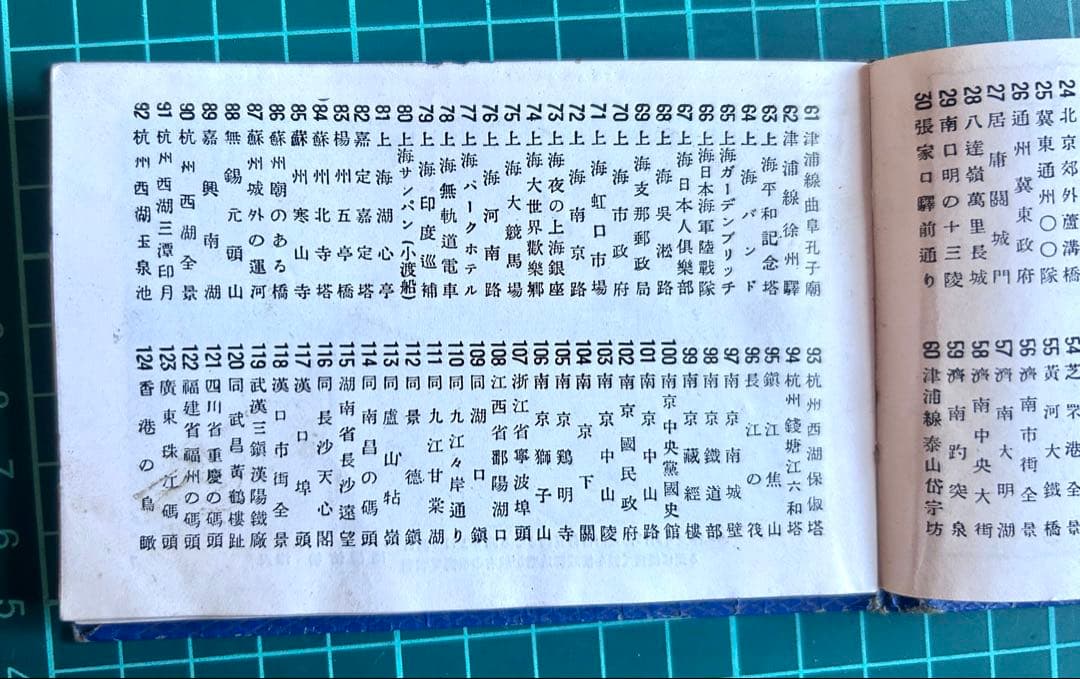 24 北京郊外蘆溝橋
25 冀東通州〇〇隊
26 通州冀東政府
27 居庸關城門
28 八達嶺萬里長城
29 南口明の十三陵
30 張家口驛前通り
54 芝罘港全景
55 黃河大鐵橋
56 濟南市街全景
57 濟南大明湖
58 濟南中央大街
59 濟南趵突泉
60 津浦線泰山岱宗坊
61 津浦線曲阜孔子廟
62 津浦線徐州驛
63 上海平和記念塔
64 上海バンド
65 上海ガーデンブリッチ
66 上海日本海軍陸戰隊
67 上海日本人俱樂部
68 上海吳淞路
69 上海支那郵政局
70 上海市政府
71 上海虹口市場
72 上海南京路
73 上海夜の上海銀座
74 上海大世界歡樂鄉
75 上海大競馬場
76 上海河南路
77 上海パークホテル
78 上海無軌道電車
79 上海印度巡補
80 上海サンパン(小渡船)
81 上海湖心亭
82 嘉定嘉定塔
83 楊州五亭橋
84 蘇州北寺塔
85 蘇州寒山寺
86 蘇州廟のある橋
87 蘇州城外の運河
88 無錫元頭山
89 嘉興南湖
90 杭州西湖全景
91 杭州西湖三潭印月
92 杭州西湖玉泉池
93 杭州西湖保俶塔
94 杭州錢塘江六和塔
95 鎭江焦山
96 長江の筏
97 南京南城壁
98 南京鐵道部
99 南京藏經樓
100 南京中央黨國史館
101 南京中山路
102 南京國民政府
103 南京中山陵
104 南京下關
105 南京鶏明寺
106 南京獅子山
107 浙江省寧波埠頭
108 江西省鄱陽湖口
109 同湖口鎭
110 同九江々岸通り
111 同九江甘棠湖
112 同景德鎭
113 同盧山牯嶺
114 同南昌の碼頭
115 湖南省長沙遠望
116 同長沙天心閣
117 漢口埠頭
118 漢口市街全景
119 武漢三鎭漢陽鐵廠
120 同武昌黃鶴樓趾
121 四川省重慶の碼頭
122 福建省福州の碼頭
123 廣東珠江碼頭
124 香港の鳥瞰